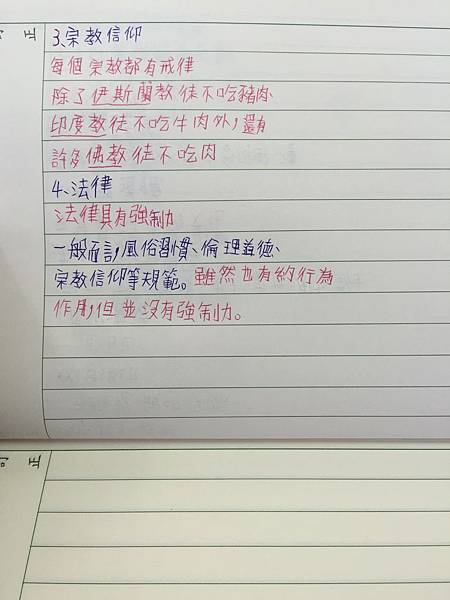 訂正
3、宗教信仰
每個宗教都有戒律
除了伊斯蘭教徒不吃豬肉、
印度教徒不吃牛肉外，還有
許多佛教徒不吃肉
4、法律
法律具有強制力
一般而言，風俗習慣、倫理道德、
宗教信仰等規範。雖然也有約行為
作用，但並沒有強制力。
訂正